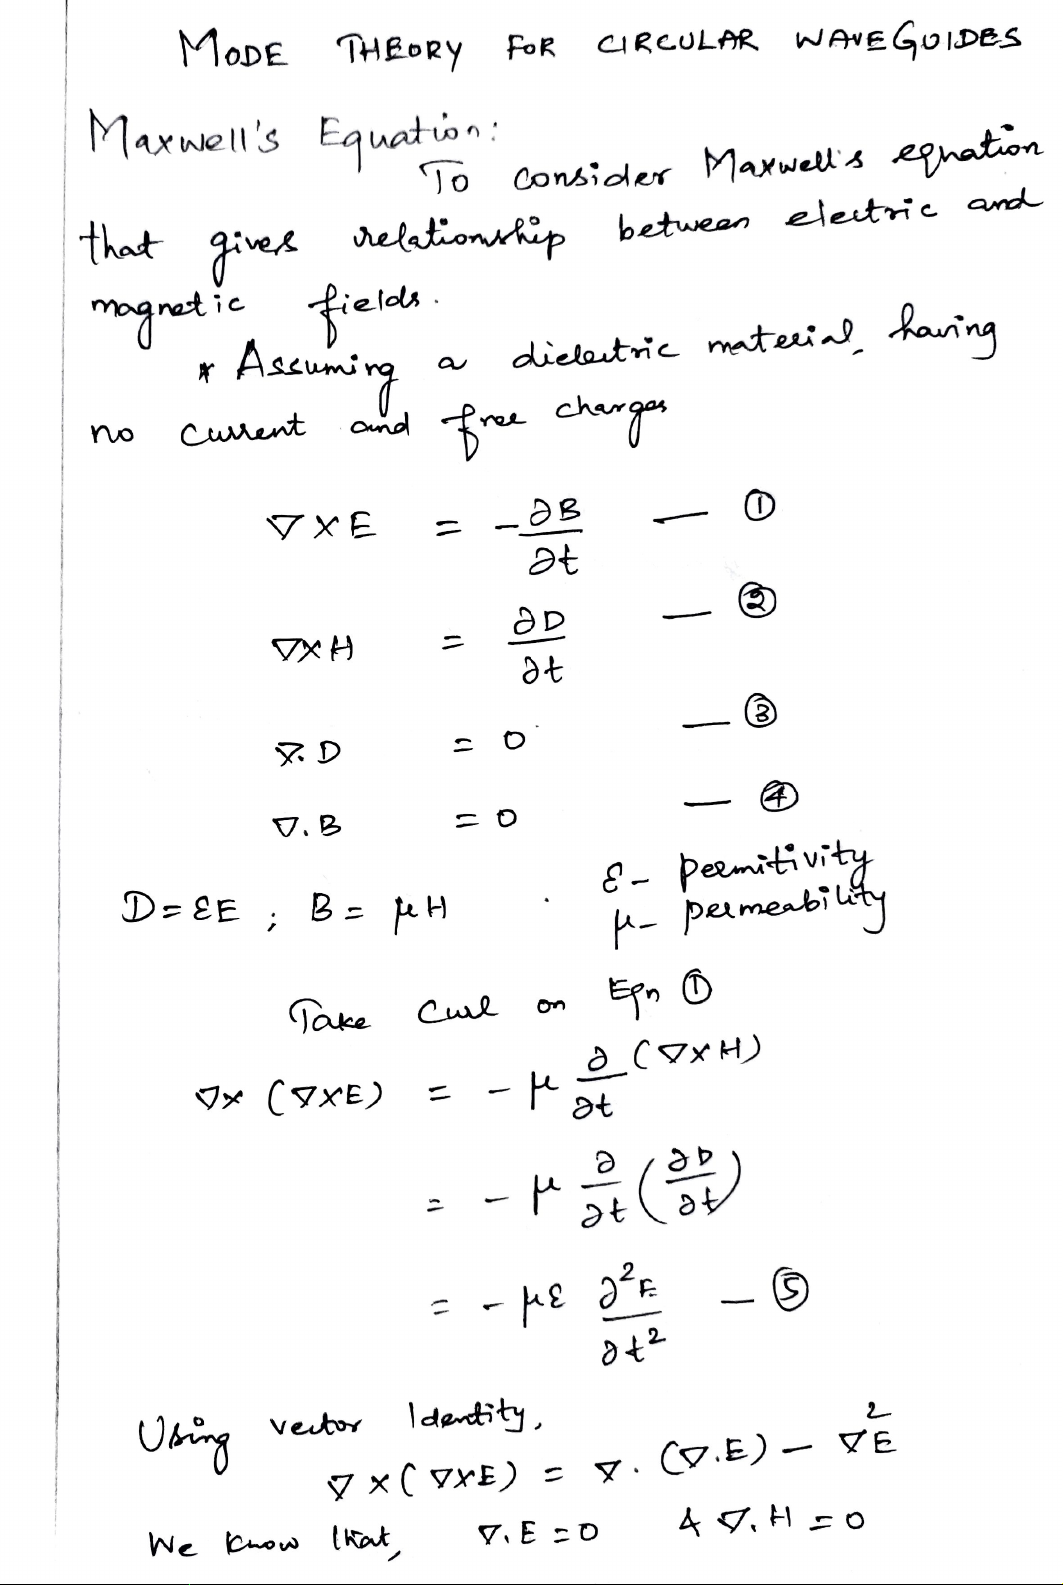 MODE THEORY FOR CIRCULAR WAVEGUIDES
Maxwell's Equation:
To consider Maxwell's equation
that gives relationship between electric and
magnetic fields.
* Assuming a dielectric material, having
no current and free charges
∇×E = -∂B/∂t — ①
∇×H = ∂D/∂t — ②
∇.D = 0 — ③
∇.B = 0 — ④
D=εE ; B=μH
ε- permitivity
μ- permeability
Take curl on Eqn ①
∇×(∇×E) = -μ ∂/∂t (∇×H)
= -μ ∂/∂t (∂D/∂t)
= -με ∂²E/∂t² — ⑤
Using vector Identity,
∇×(∇×E) = ∇.(∇.E) - ∇²E
We know that, ∇.E=0 & ∇.H=0